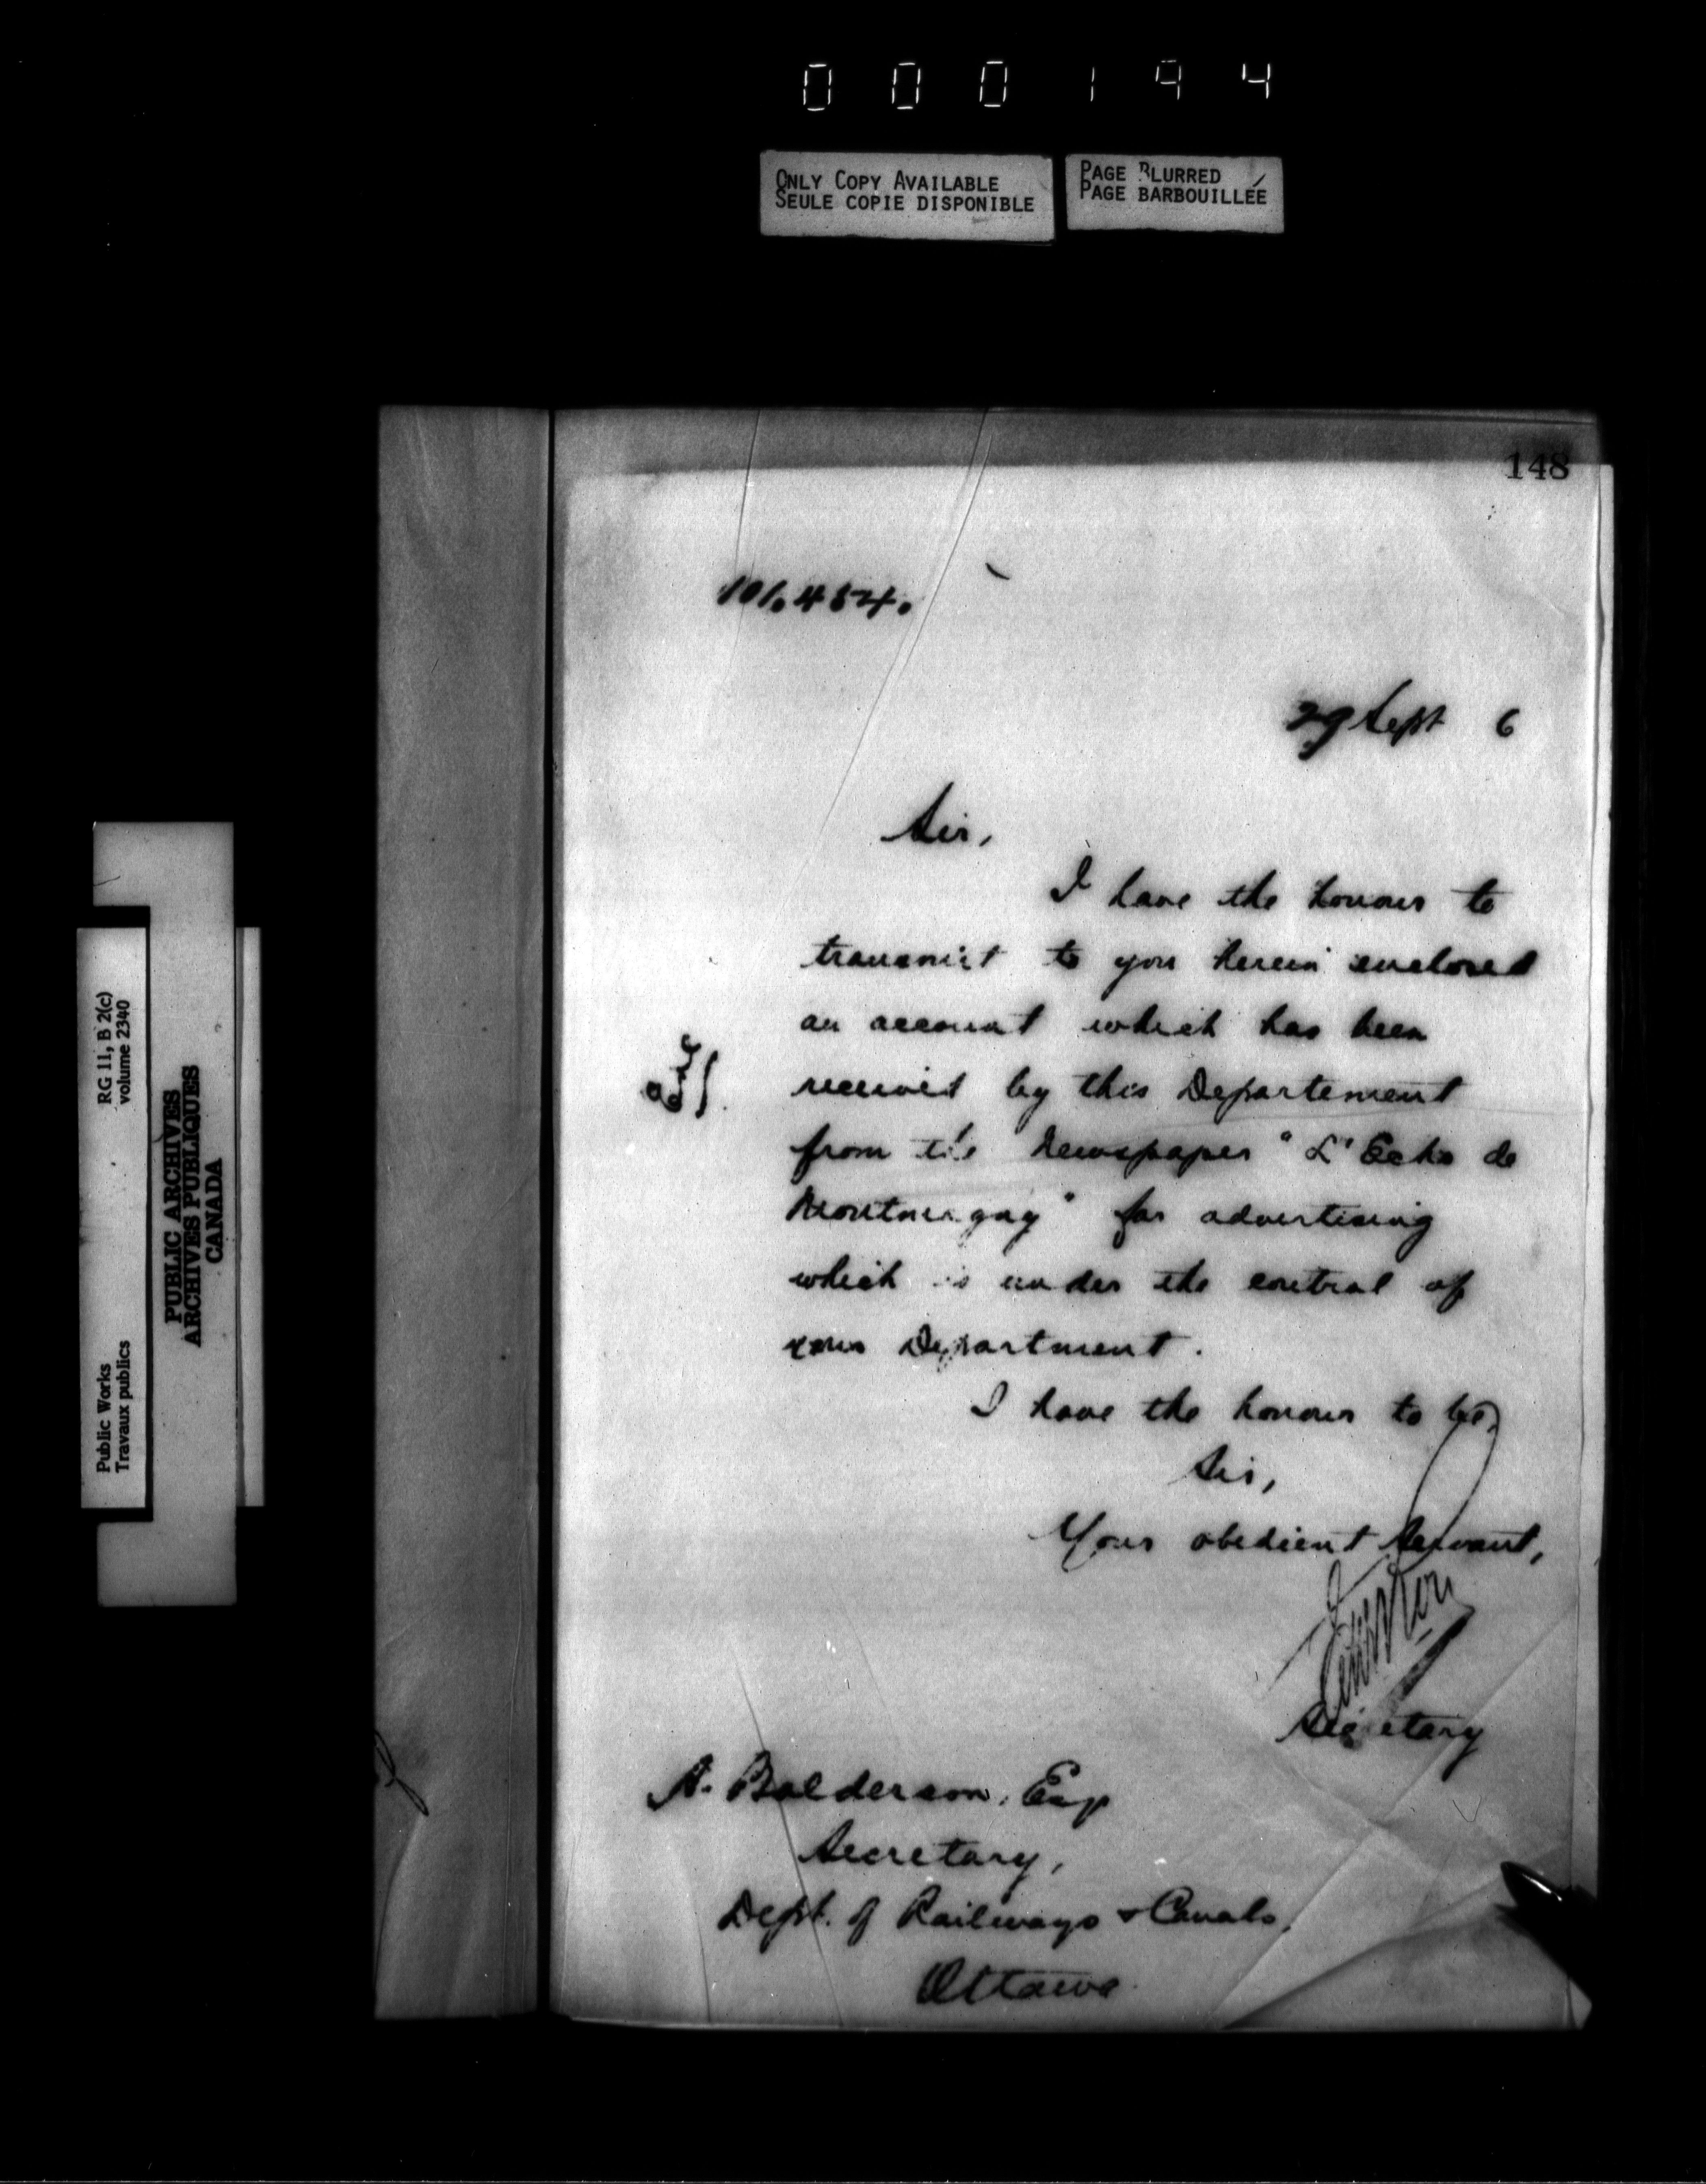 000194
ONLY COPY AVAILABLE
SEULE COPIE DISPONIBLE
PAGE BLURRED
PAGE BARBOUILLÉE
RG 11, B 2(c)
volume 2340
Public Works
Travaux publics
PUBLIC ARCHIVES
ARCHIVES PUBLIQUES
CANADA
148
29 Sept 6
Sir,
I have the honour to
transmit to you herein enclosed
an account which has been
received by this Departement
from the Newspaper "L'Echo de
Montmagny" for advertising
which is under the control of
your Department.
I have the honour to be,
Sir,
Your obedient Servant,
Secretary
A. Balderson, Esq
Secretary,
Dept. of Railways & Canals,
Ottawa